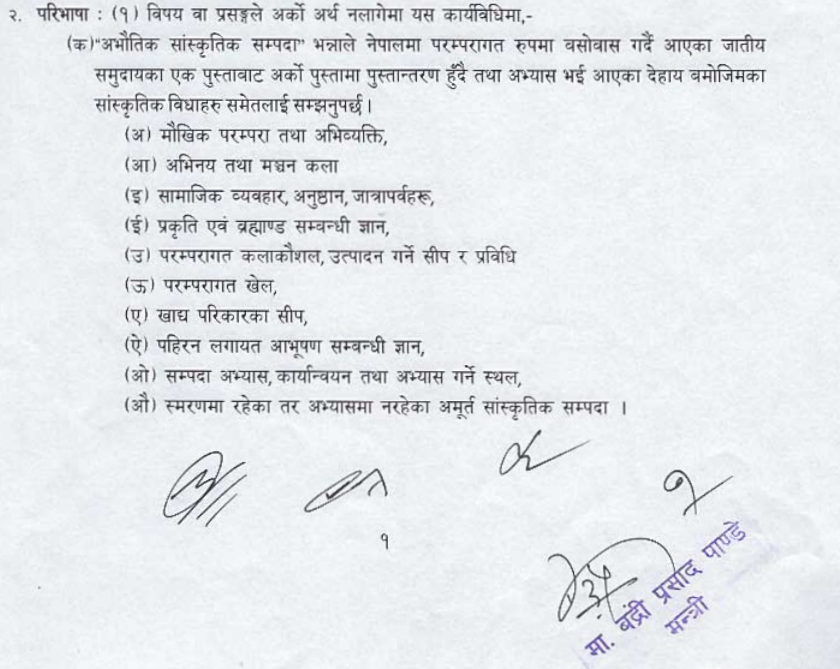 २. परिभाषा : (१) विषय वा प्रसङ्गले अर्को अर्थ नलागेमा यस कार्यविधिमा,-
(क)"अभौतिक सांस्कृतिक सम्पदा" भन्नाले नेपालमा परम्परागत रुपमा बसोवास गर्दै आएका जातीय
समुदायका एक पुस्ताबाट अर्को पुस्तामा पुस्तान्तरण हुँदै तथा अभ्यास भई आएका देहाय बमोजिमका
सांस्कृतिक विधाहरु समेतलाई सम्झनुपर्छ।
(अ) मौखिक परम्परा तथा अभिव्यक्ति,
(आ) अभिनय तथा मञ्चन कला
(इ) सामाजिक व्यवहार, अनुष्ठान, जात्रापर्वहरू,
(ई) प्रकृति एवं ब्रह्माण्ड सम्बन्धी ज्ञान,
(उ) परम्परागत कलाकौशल, उत्पादन गर्ने सीप र प्रविधि
(ऊ) परम्परागत खेल,
(ए) खाद्य परिकारका सीप,
(ऐ) पहिरन लगायत आभूषण सम्बन्धी ज्ञान,
(ओ) सम्पदा अभ्यास, कार्यान्वयन तथा अभ्यास गर्ने स्थल,
(औ) स्मरणमा रहेका तर अभ्यासमा नरहेका अमूर्त सांस्कृतिक सम्पदा ।
१
मा. बद्री प्रसाद पाण्डे
मन्त्री